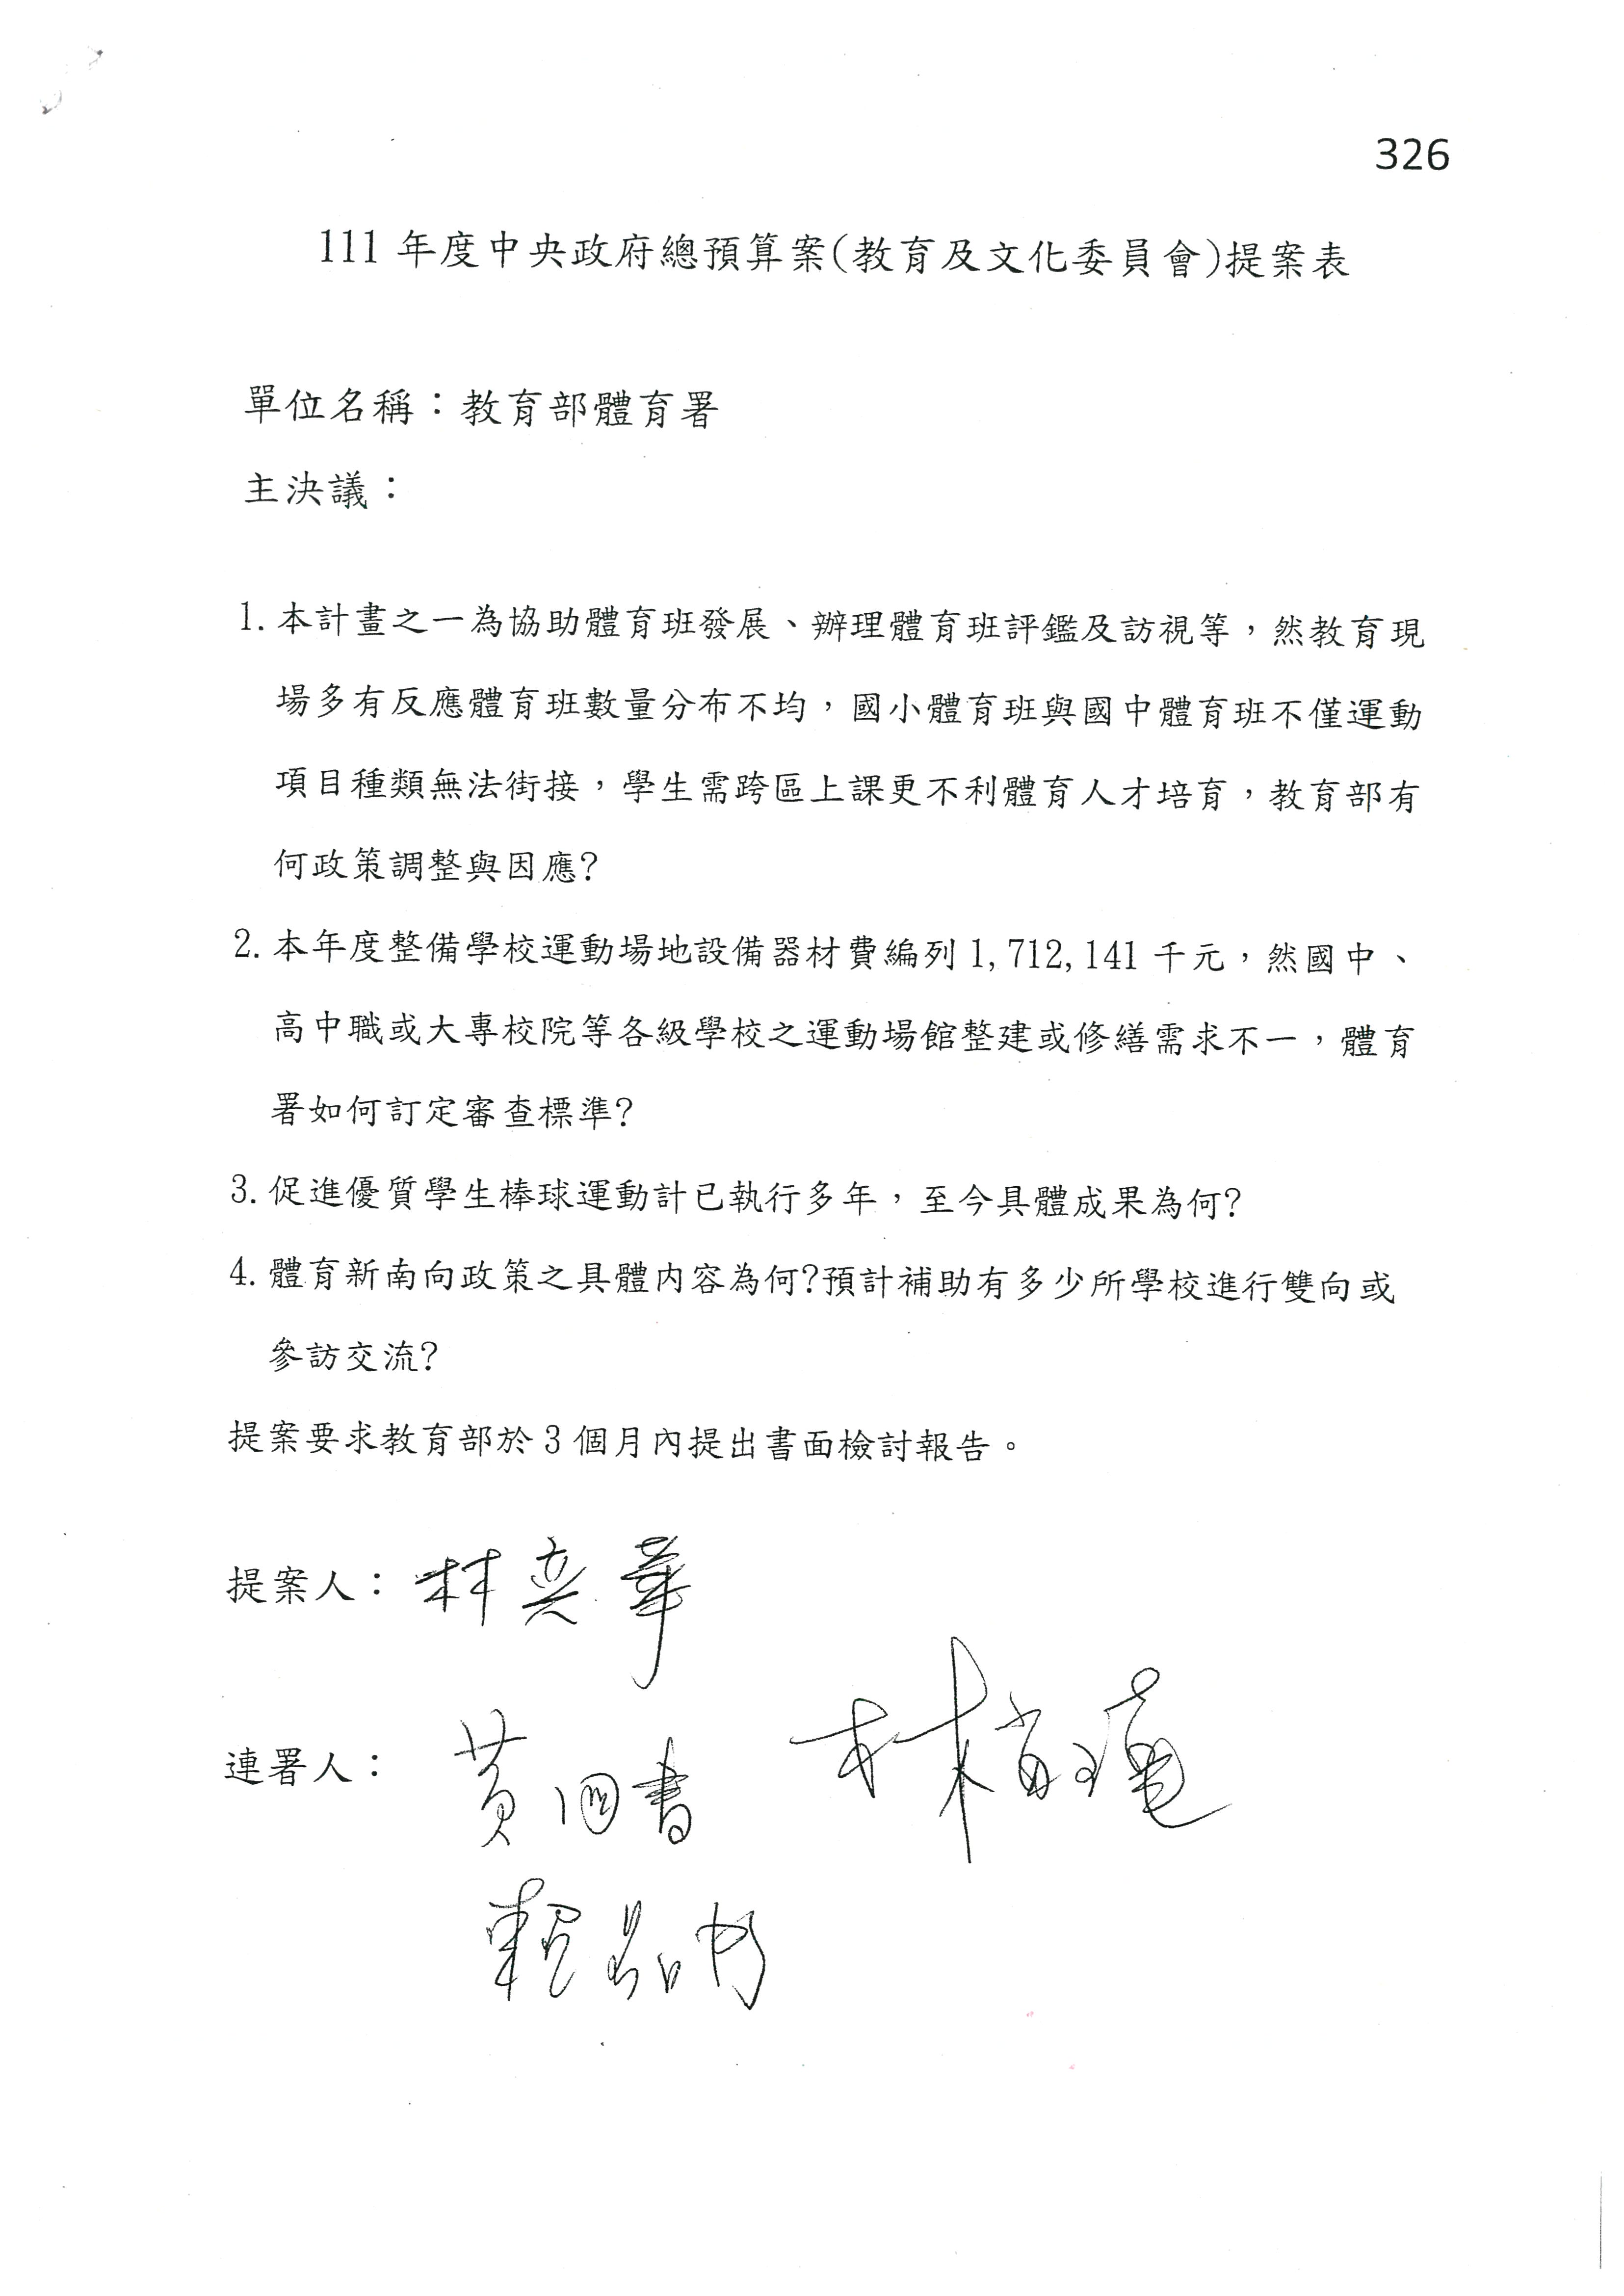 326
111 年度中央政府總預算案(教育及文化委員會)提案表
單位名稱：教育部體育署
主決議：
1. 本計畫之一為協助體育班發展、辦理體育班評鑑及訪視等，然教育現
場多有反應體育班數量分布不均，國小體育班與國中體育班不僅運動
項目種類無法銜接，學生需跨區上課更不利體育人才培育，教育部有
何政策調整與因應?
2. 本年度整備學校運動場地設備器材費編列 1,712,141 千元，然國中、
高中職或大專校院等各級學校之運動場館整建或修繕需求不一，體育
署如何訂定審查標準?
3. 促進優質學生棒球運動計已執行多年，至今具體成果為何?
4. 體育新南向政策之具體內容為何?預計補助有多少所學校進行雙向或
參訪交流?
提案要求教育部於 3 個月內提出書面檢討報告。
提案人：林奕華
連署人：黃國書